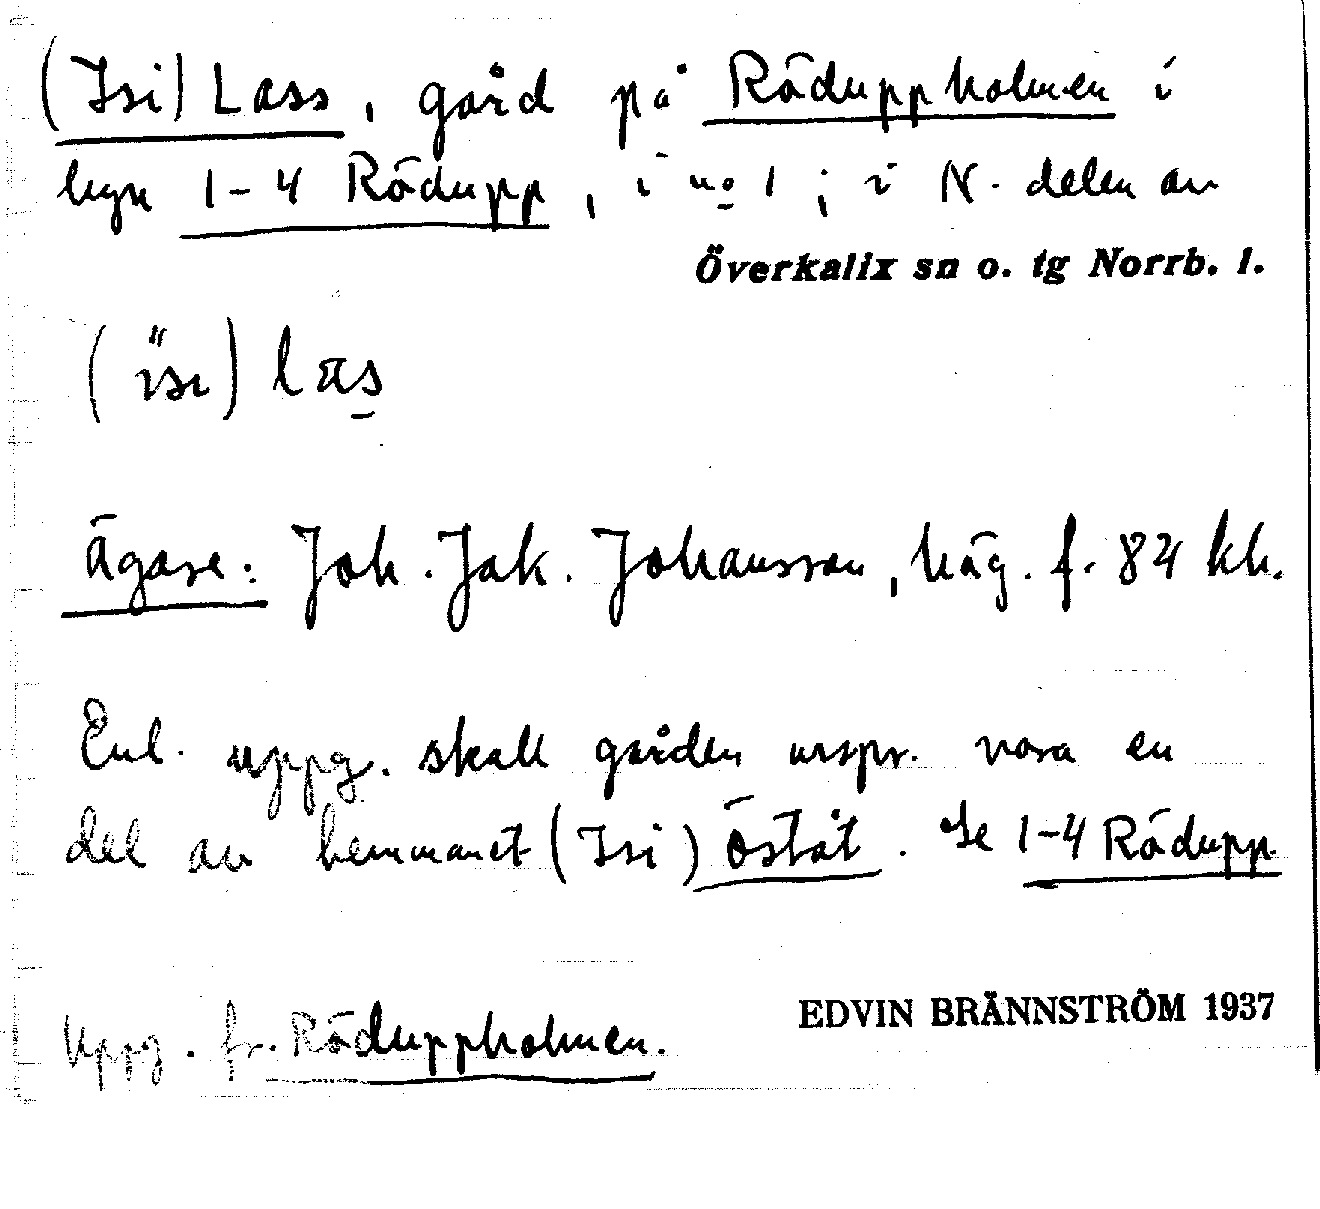 (Isi) Lass, gård på Röduppholmen i
byn 1-4 Rödupp, i no 1; i N. delen av
Överkalix sn o. tg Norrb. l.
(ısı) las
Ägare: Joh. Jak. Johansson, häg. f. 84 kh.
Enl. uppg. skall gården urspr. vara en
del av hemmanet (Isi) Östât. Se 1-4 Rödupp.
Uppg. fr. Röduppholmen.
EDVIN BRÄNNSTRÖM 1937